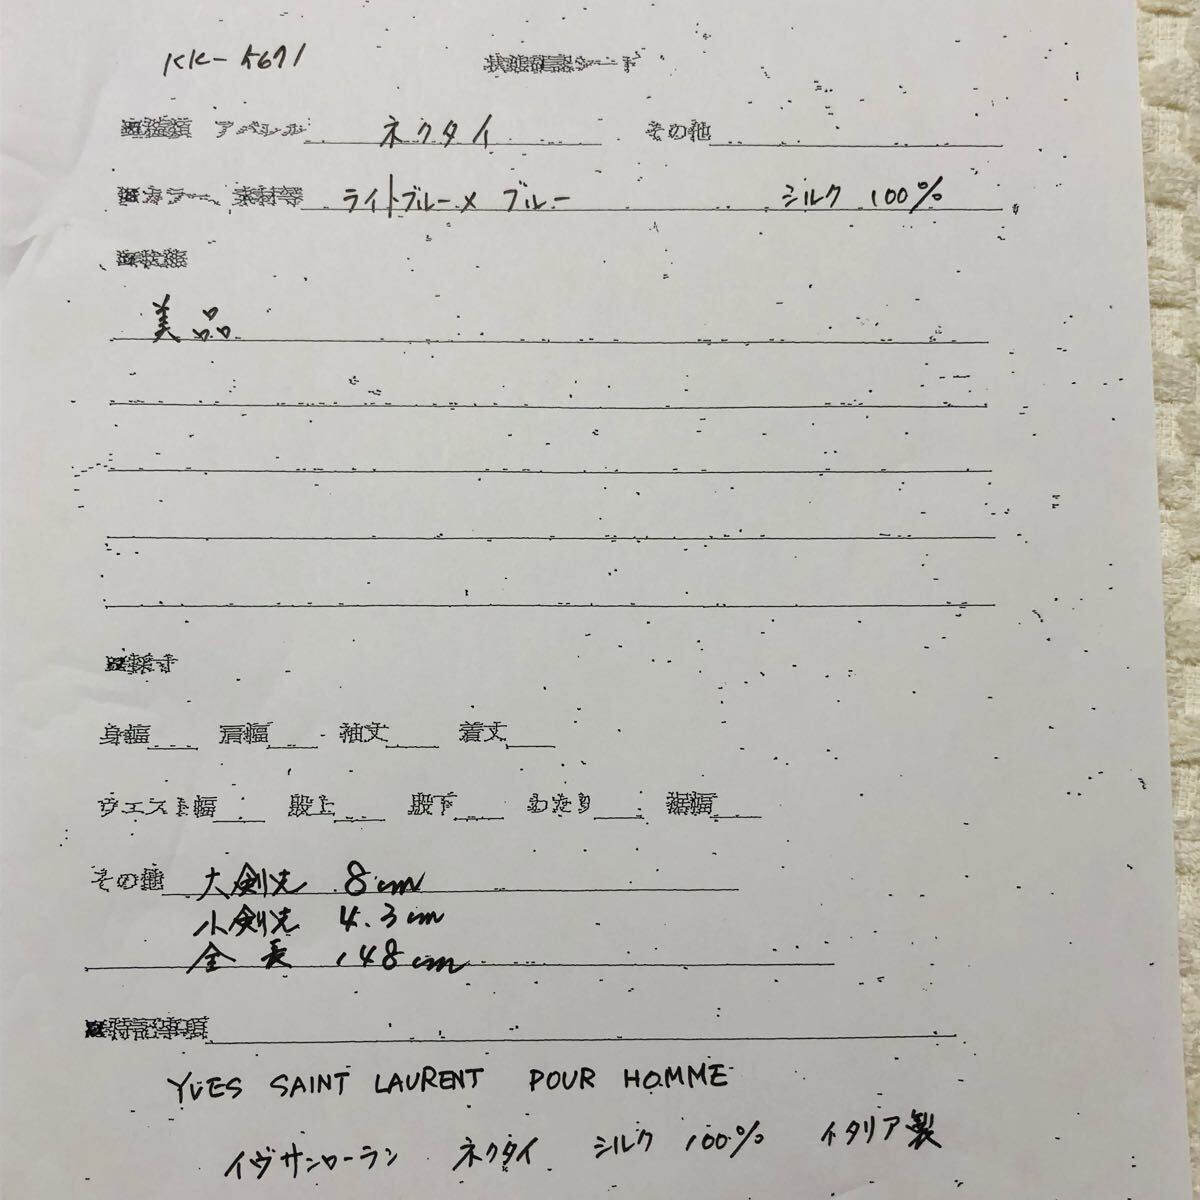 KK-5671 状態確認シート
■種類 アパレル ネクタイ その他
■カラー、素材等 ライトブルー× ブルー シルク 100%
■状態
美品
■採寸
身幅 肩幅 袖丈 着丈
ウエスト幅 股上 股下 わたり 裾幅
その他 大剣先 8cm
小剣先 4.3cm
全長 148cm
■特記事項
YVES SAINT LAURENT POUR HOMME
イヴサンローラン ネクタイ シルク 100% イタリア製